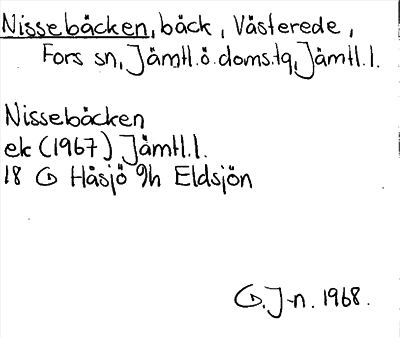 Nissebäcken, bäck, Västerede,
Fors sn, Jämtl.ö.doms.tg, Jämtl.l.
Nissebäcken
ek (1967) Jämtl.l.
18 G Håsjö 9h Eldsjön
G. J-n. 1968.